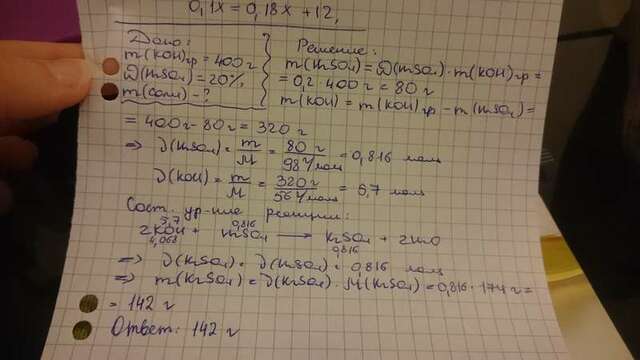 0,1x = 0,18x + 12,
Дано:
m(KOH)гр = 400 г
D(H₂SO₄) = 20%
m(соли) - ?
Решение:
m(H₂SO₄) = D(H₂SO₄) · m(KOH)гр =
= 0,2 · 400 г = 80 г
m(KOH) = m(KOH)гр – m(H₂SO₄) =
= 400 г – 80 г = 320 г
⇒ ν(H₂SO₄) = m/M = 80 г / 98 г/моль = 0,816 моль
ν(KOH) = m/M = 320 г / 56 г/моль = 5,7 моль
Сост. ур-ние реакции:
5,7 0,816
2KOH + H₂SO₄ ⟶ K₂SO₄ + 2H₂O
0,816
⇒ ν(K₂SO₄) = ν(H₂SO₄) = 0,816 моль
⇒ m(K₂SO₄) = ν(K₂SO₄) · M(K₂SO₄) = 0,816 · 174 г =
= 142 г
Ответ: 142 г